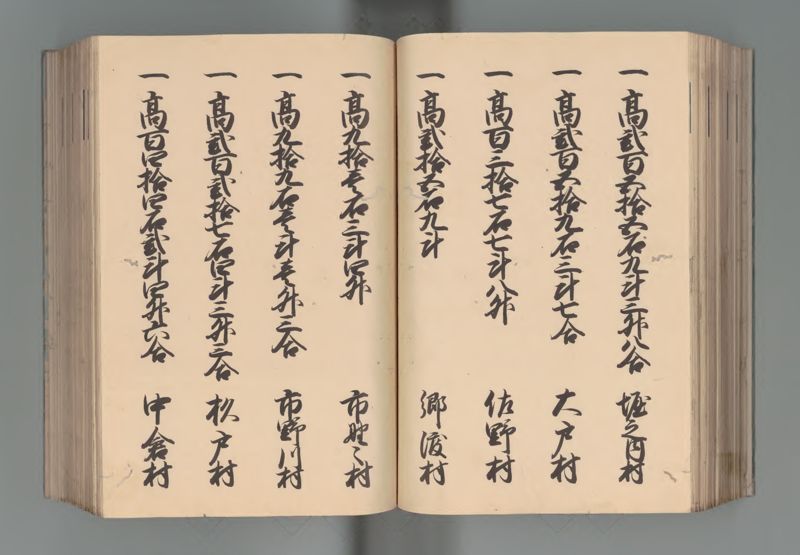 一 高弐百五拾五石九斗三升八合 堀之内村
一 高弐百五拾九石三斗七合 大戸村
一 高百三拾七石七斗八升 佐野村
一 高弐拾五石九斗 郷渡村
一 高九拾壱石三斗四升 市野々村
一 高九拾九石壱斗壱升三合 市野川村
一 高弐百弐拾七石四斗三升三合 松戸村
一 高百四拾四石弐斗四升六合 中倉村